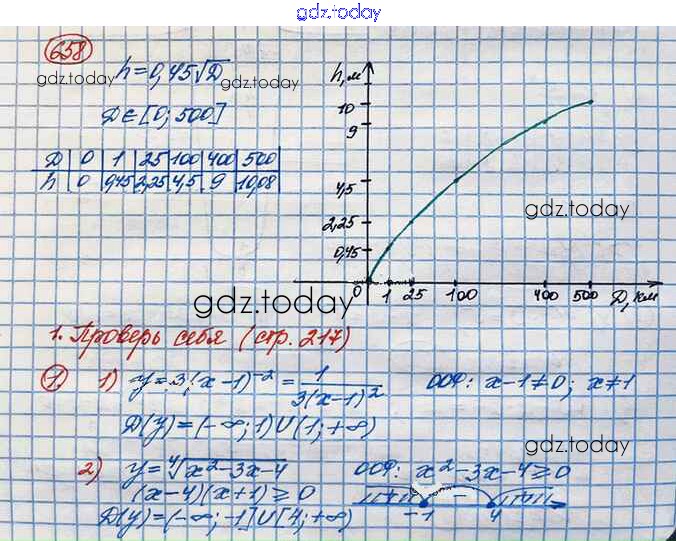 gdz.today
658
h = 0,45√D
gdz.today
gdz.today
D ∈ [0; 500]
D 0 1 25 100 400 500
h 0 0,45 2,25 4,5 9 10,08
h, м
10
9
4,5
2,25
0,45
0 1 25 100 400 500 D, км
gdz.today
gdz.today
1. Проверь себя (стр. 217)
1. 1) y = 3(x-1)⁻² = 1/3(x-1)² ООФ: x-1≠0; x≠1
D(y) = (-∞; 1)∪(1; +∞)
gdz.today
2) y = ⁴√x²-3x-4 ООФ: x²-3x-4≥0
(x-4)(x+1)≥0
D(y) = (-∞; -1]∪[4; +∞)
-
-1 4